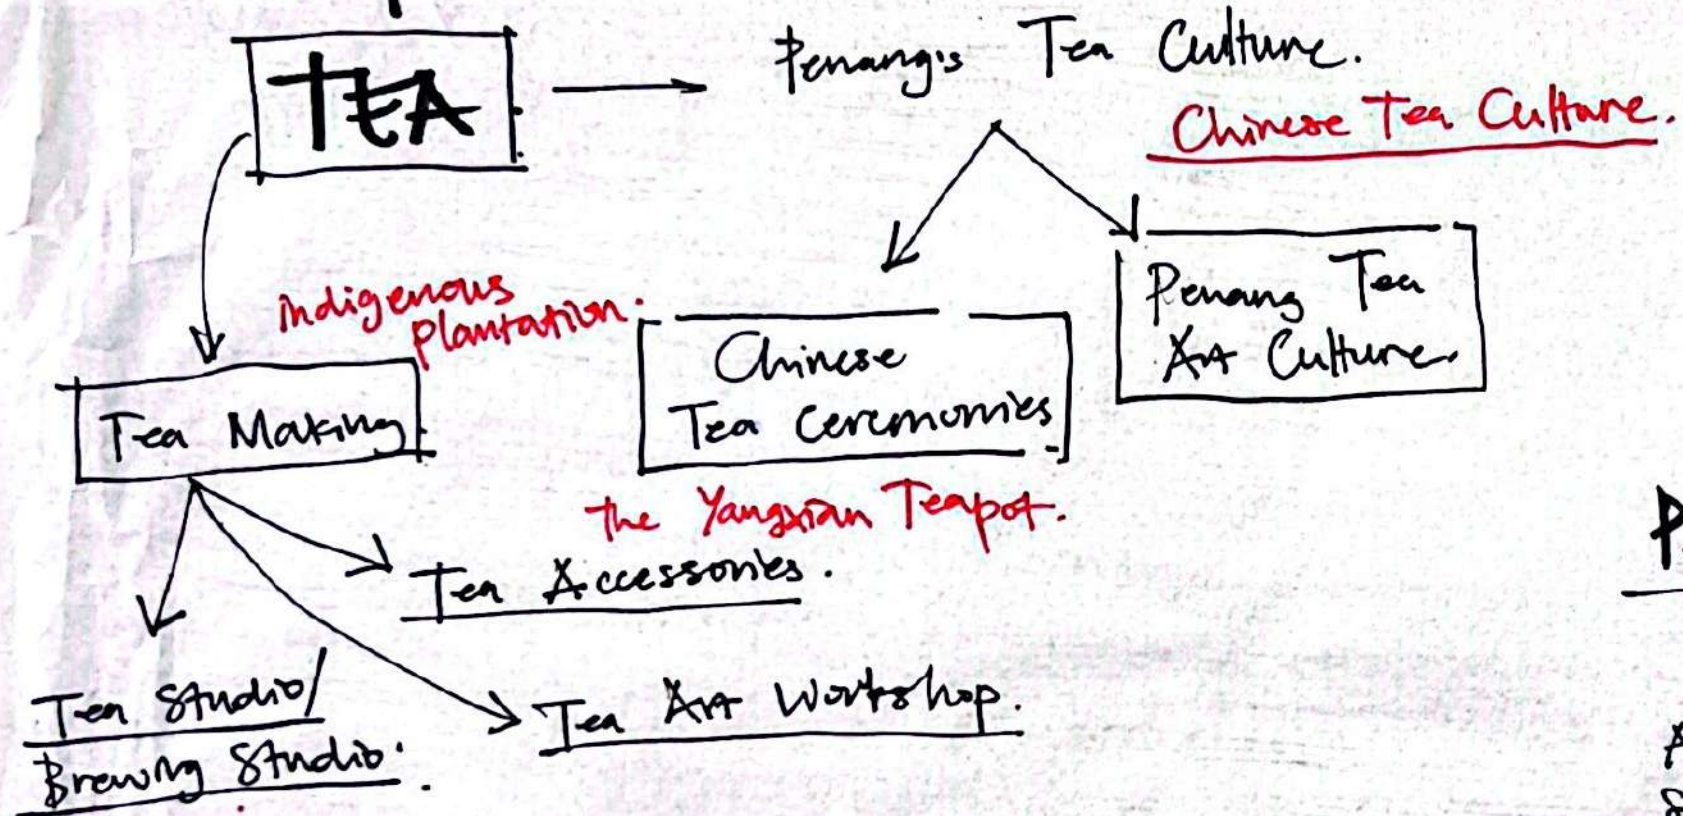 TEA
Penang's Tea Culture.
Chinese Tea Culture.
indigenous
plantation.
Penang Tea
Art Culture.
Chinese
Tea Ceremonies
Tea Making
the Yangxian Teapot.
Tea Accessories.
Tea Studio/
Brewing Studio.
Tea Art Workshop.